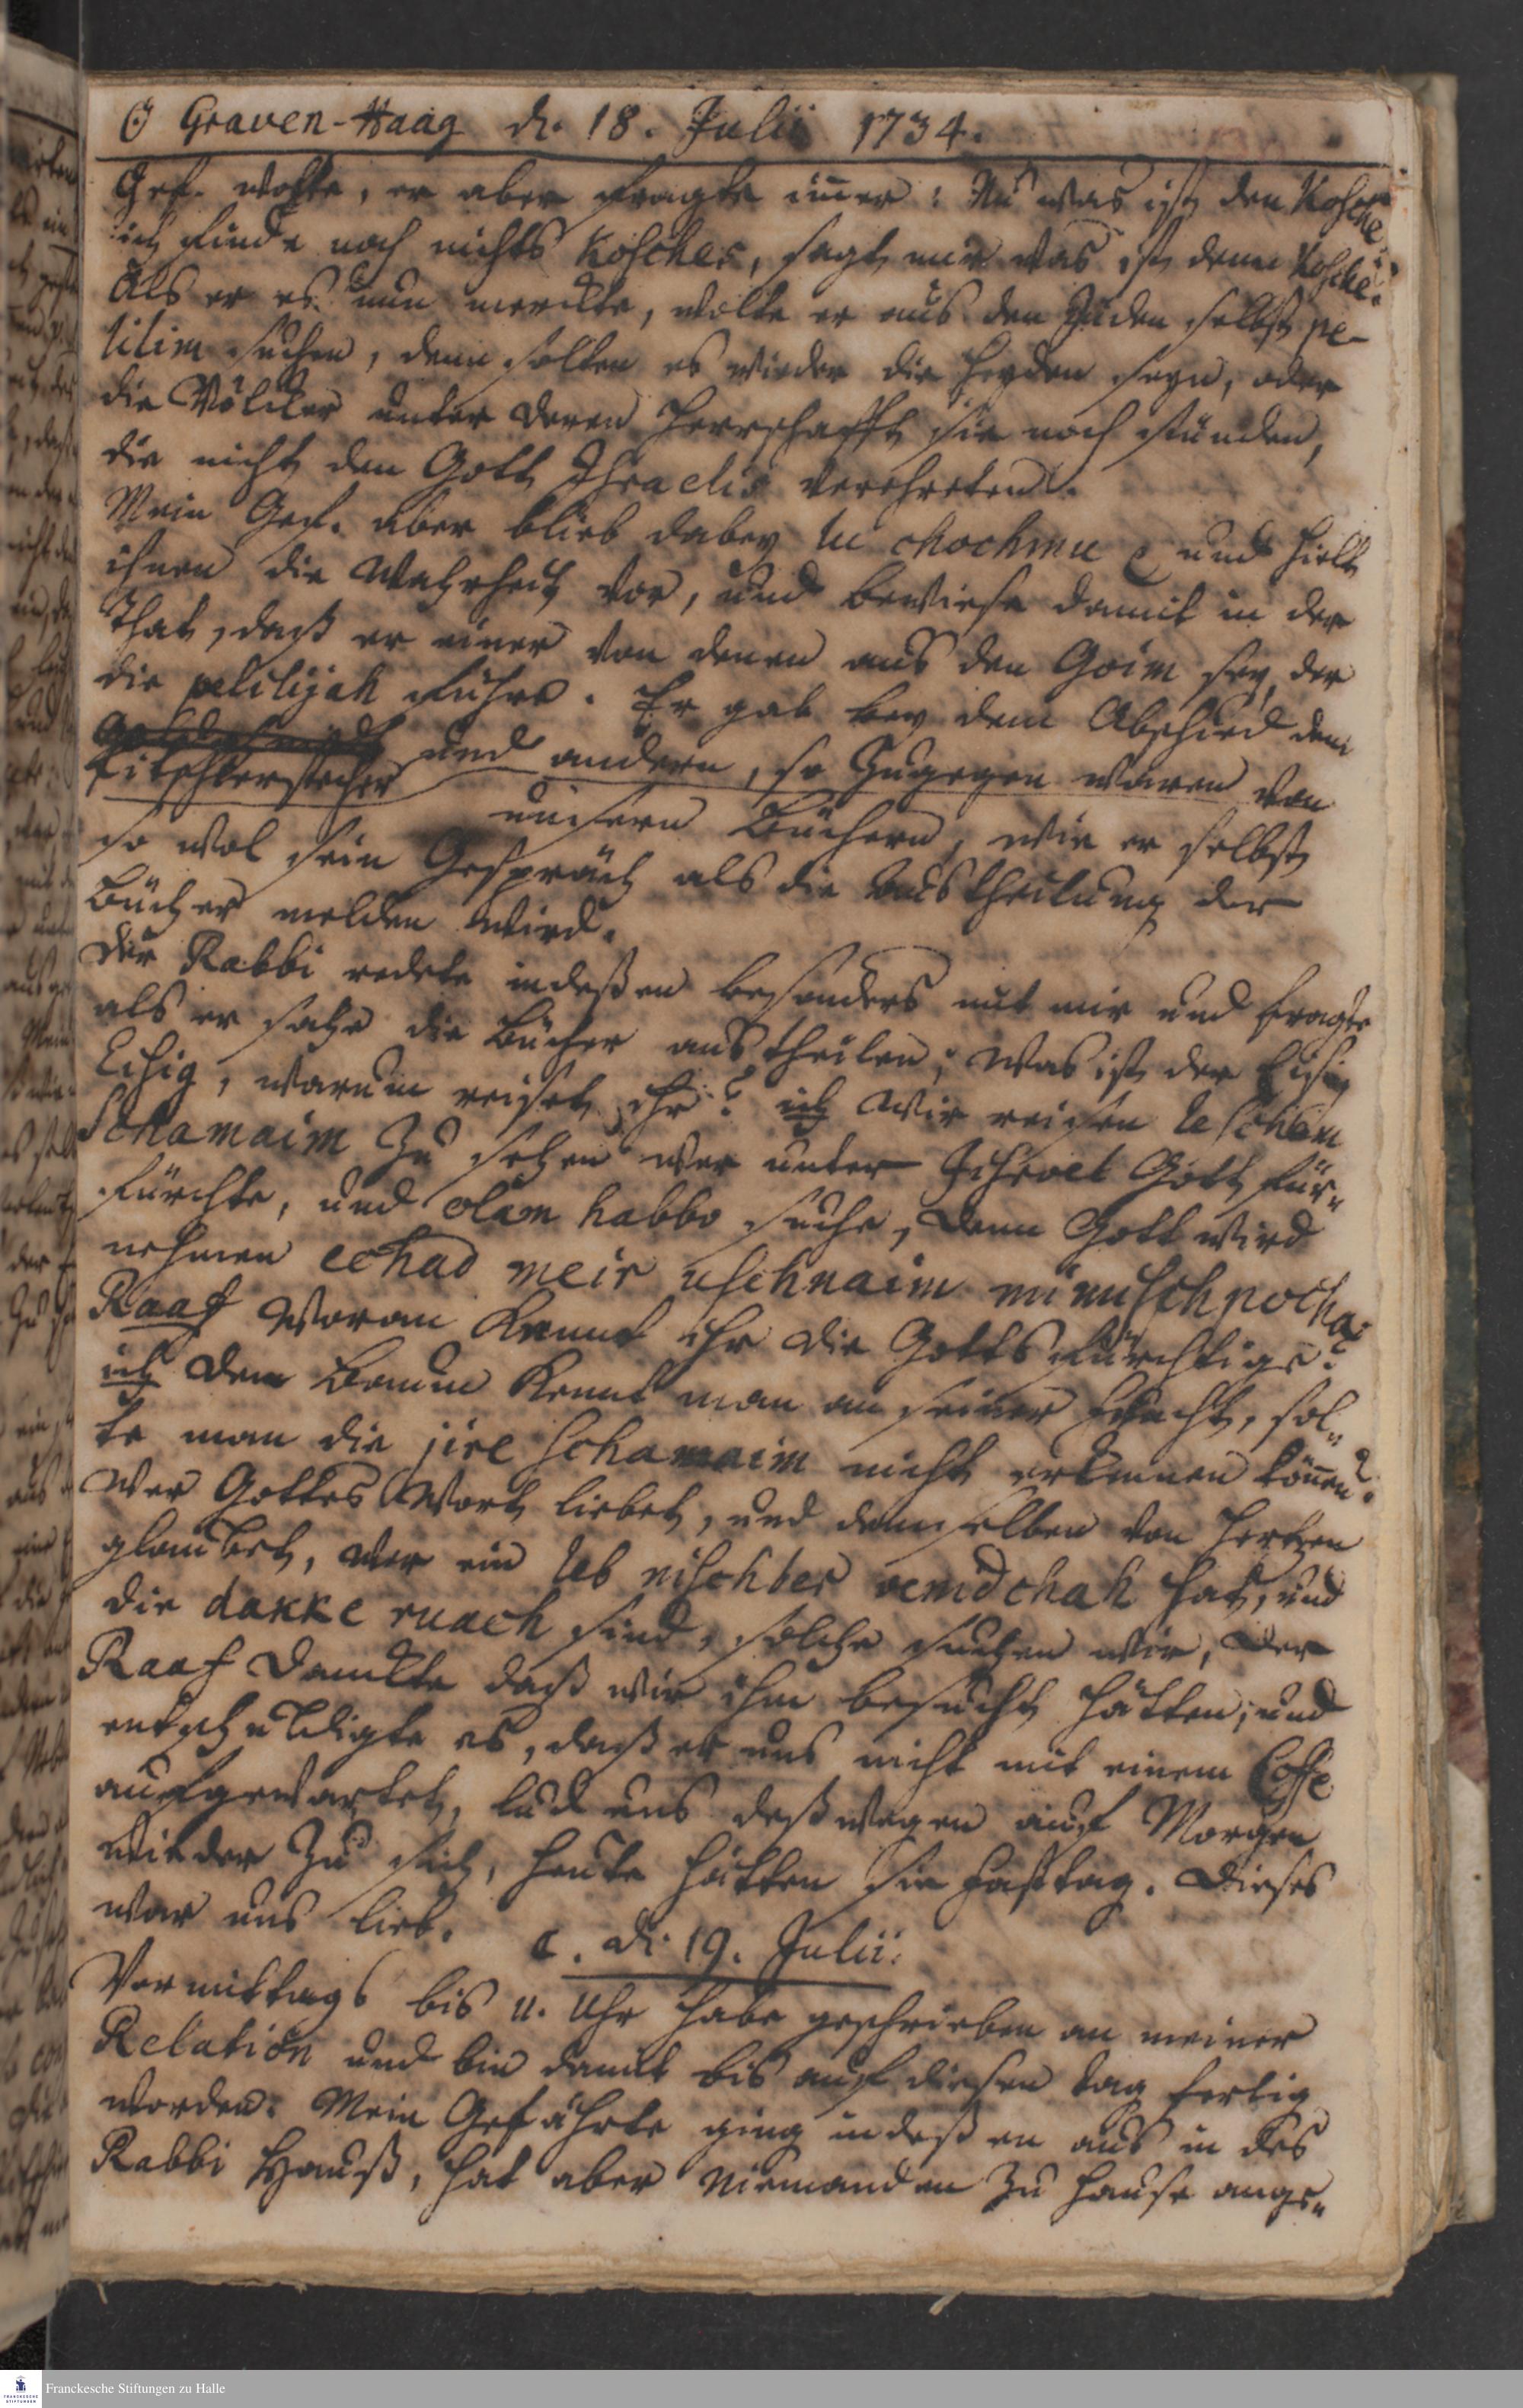 ☉ Graven-Haag d. 18. Julii 1734.
Gef. wolte, er aber fragte im̄er: Nu was ist den Koscher
ich finde noch nichts Koscher, sagt mir was ist denn Koscher?
Als er es nun merckte, wolte er aus den Juden selbst pe-
litim suchen, denn solten es wieder die Heyden seyn, oder
die Völcker unter deren Herrschafft sie noch stünden,
die nicht den Gott Israelis verehreten.
Mein Gef. aber blieb dabey lu chochmu und hielt
ihnen die Wahrheit vor, und bewiese damit in der
That, daß er einer von denen aus den Goim sey, der
die pelitijah führe. Er gab bey dem Abschied dem
Pitschierstecher und andern, so zugegen waren von
unsern Büchern, wie er selbst
so wol sein Gespräch als die Austheilung der
Bücher melden wird.
Der Rabbi redete indeßen besonders mit mir und fragte
als er sahe die Bücher austheilen; was ist der
warum reiset ihr? ich wir reisen leschem
Schamaim zu sehen wer unter Jisroel Gott für-
fürchte, und olam habbo suche, denn Gott wird
nehmen echad meir uschnaim mimischpocha:
Raaf woran kennt ihr die Gottsfürchtige?
ich den Baum kennt man an seiner Frucht, sol-
te man die jire schamaim nicht erkennen kön̄en?
Wer Gottes Wort liebet, und demselben von Hertzen
glaubet, wer ein leb nischber venidchah hat, und
die dakke ruach sind, solche suchen wir, Der
Raaf danckte daß wir ihn besucht hätten; und
entschuldigte es, daß er uns nicht mit einem Coffe
aufgewartet, lud uns deßwegen auf Morgen
wieder zu sich, heute hätten sie Fasttag. Dieses
war uns lieb.
☾. d. 19. Julii.
Vormittags bis 11. Uhr habe geschrieben an meiner
Relation und bin damit bis auf diesen tag fertig
worden. Mein Gefährte ging indeßen aus in des
Rabbi Hauß, hat aber niemanden zu Hause ange-
Franckesche Stiftungen zu Halle